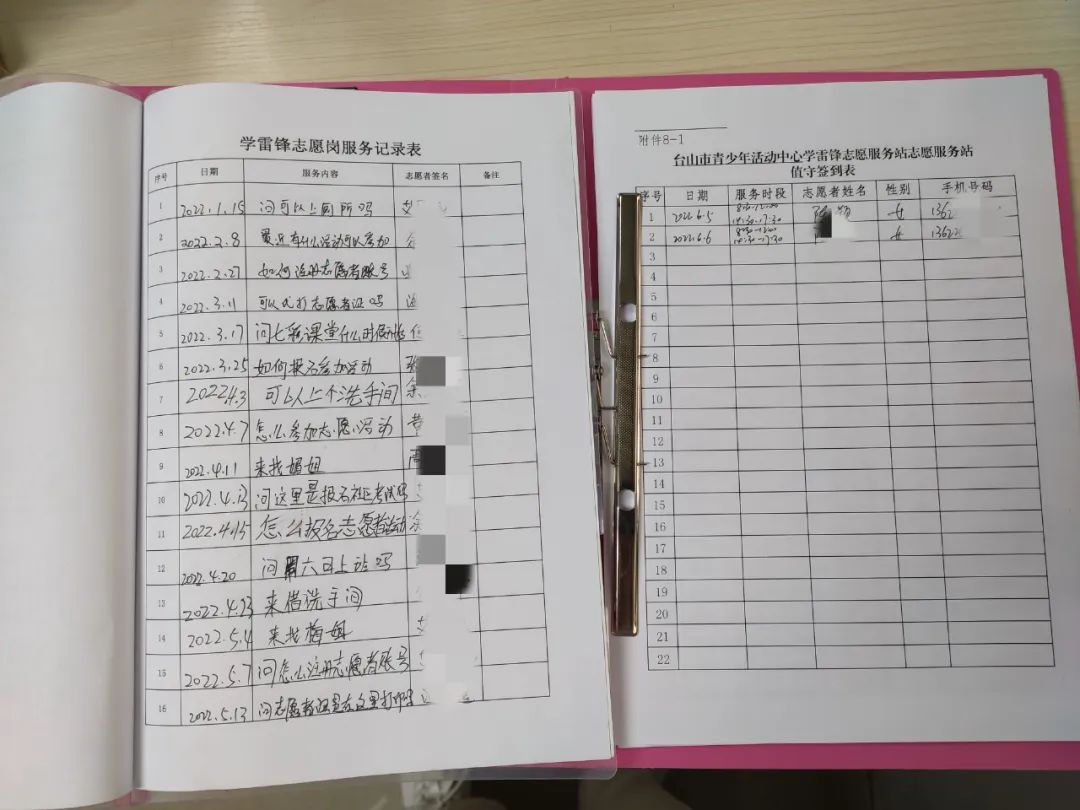 学雷锋志愿岗服务记录表
序号 日期 服务内容 志愿者签名 备注
1 2022.1.15 问可以上厕所吗
2 2022.2.8 最近有什么活动可以参加
3 2022.2.27 如何注册志愿者账号
4 2022.3.11 可以代打志愿者证吗
5 2022.3.17 问七彩课堂什么时候开始
6 2022.3.25 如何报名参加活动 张
7 2022.4.3 可以上个洗手间 余
8 2022.4.7 怎么参加志愿活动 黄
9 2022.4.11 来找媚姐
10 2022.4.13 问这里是报名社工考试吗
11 2022.4.15 怎么报名志愿者活动 余
12 2022.4.20 问周六日上班吗
13 2022.4.23 来借洗手间
14 2022.5.4 来找媚姐
15 2022.5.7 问怎么注册志愿者账号
16 2022.5.13 问志愿者证是在这里打印吗
附件8-1
台山市青少年活动中心学雷锋志愿服务站志愿服务站
值守签到表
序号 日期 服务时段 志愿者姓名 性别 手机号码
1 2022.6.5 8:30-12:00 14:30-17:30 女 1362
2 2022.6.6 8:30-12:00 14:30-17:30 女 1362
3
4
5
6
7
8
9
10
11
12
13
14
15
16
17
18
19
20
21
22